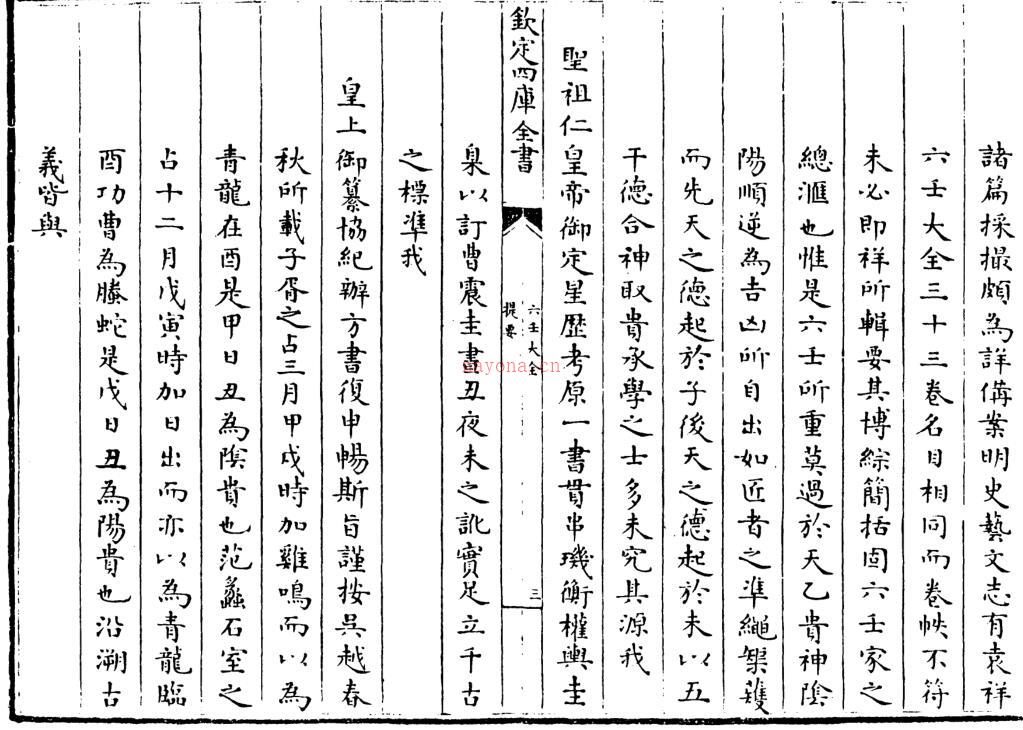 諸篇採撮頗為詳備案明史藝文志有袁祥
六壬大全三十三卷名目相同而卷帙不符
未必即祥所輯要其博綜簡括固六壬家之
總滙也惟是六壬所重莫過於天乙貴神陰
陽順逆為吉凶所自出如匠者之準繩榘矱
而先天之德起於子後天之德起於未以五
干德合神取貴承學之士多未究其源我
聖祖仁皇帝御定星歷考原一書貫串璣衡權輿圭
欽定四庫全書
六壬大全
提要
三
臬以訂曹震圭晝丑夜未之訛實足立千古
之標準我
皇上御纂協紀辦方書復申暢斯旨謹按吳越春
秋所載子胥之占三月甲戌時加雞鳴而以為
青龍在酉是甲日丑為陰貴也范蠡石室之
占十二月戊寅時加日出而亦以為青龍臨
酉功曹為螣蛇是戊日丑為陽貴也沿溯古
義皆與
nayona.cn